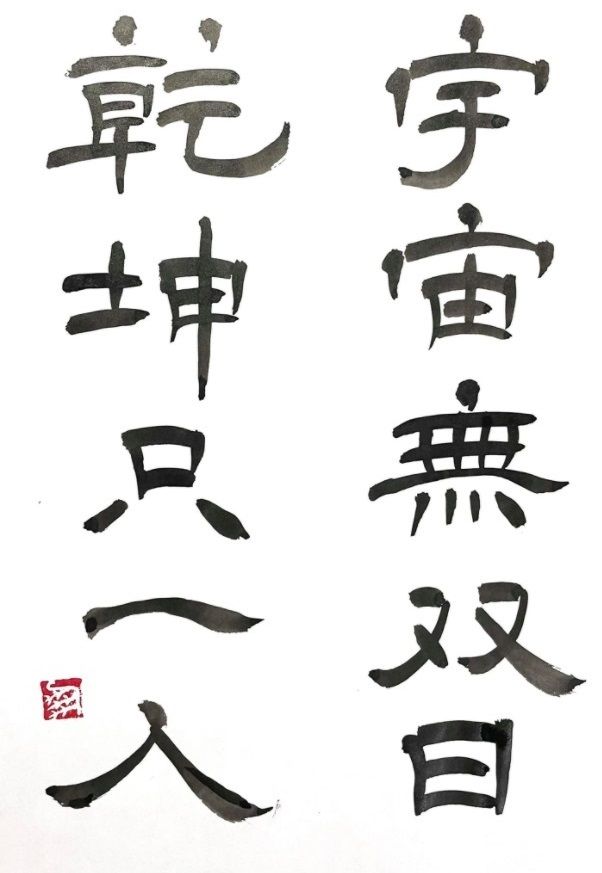 宇宙無双日
乾坤只一人